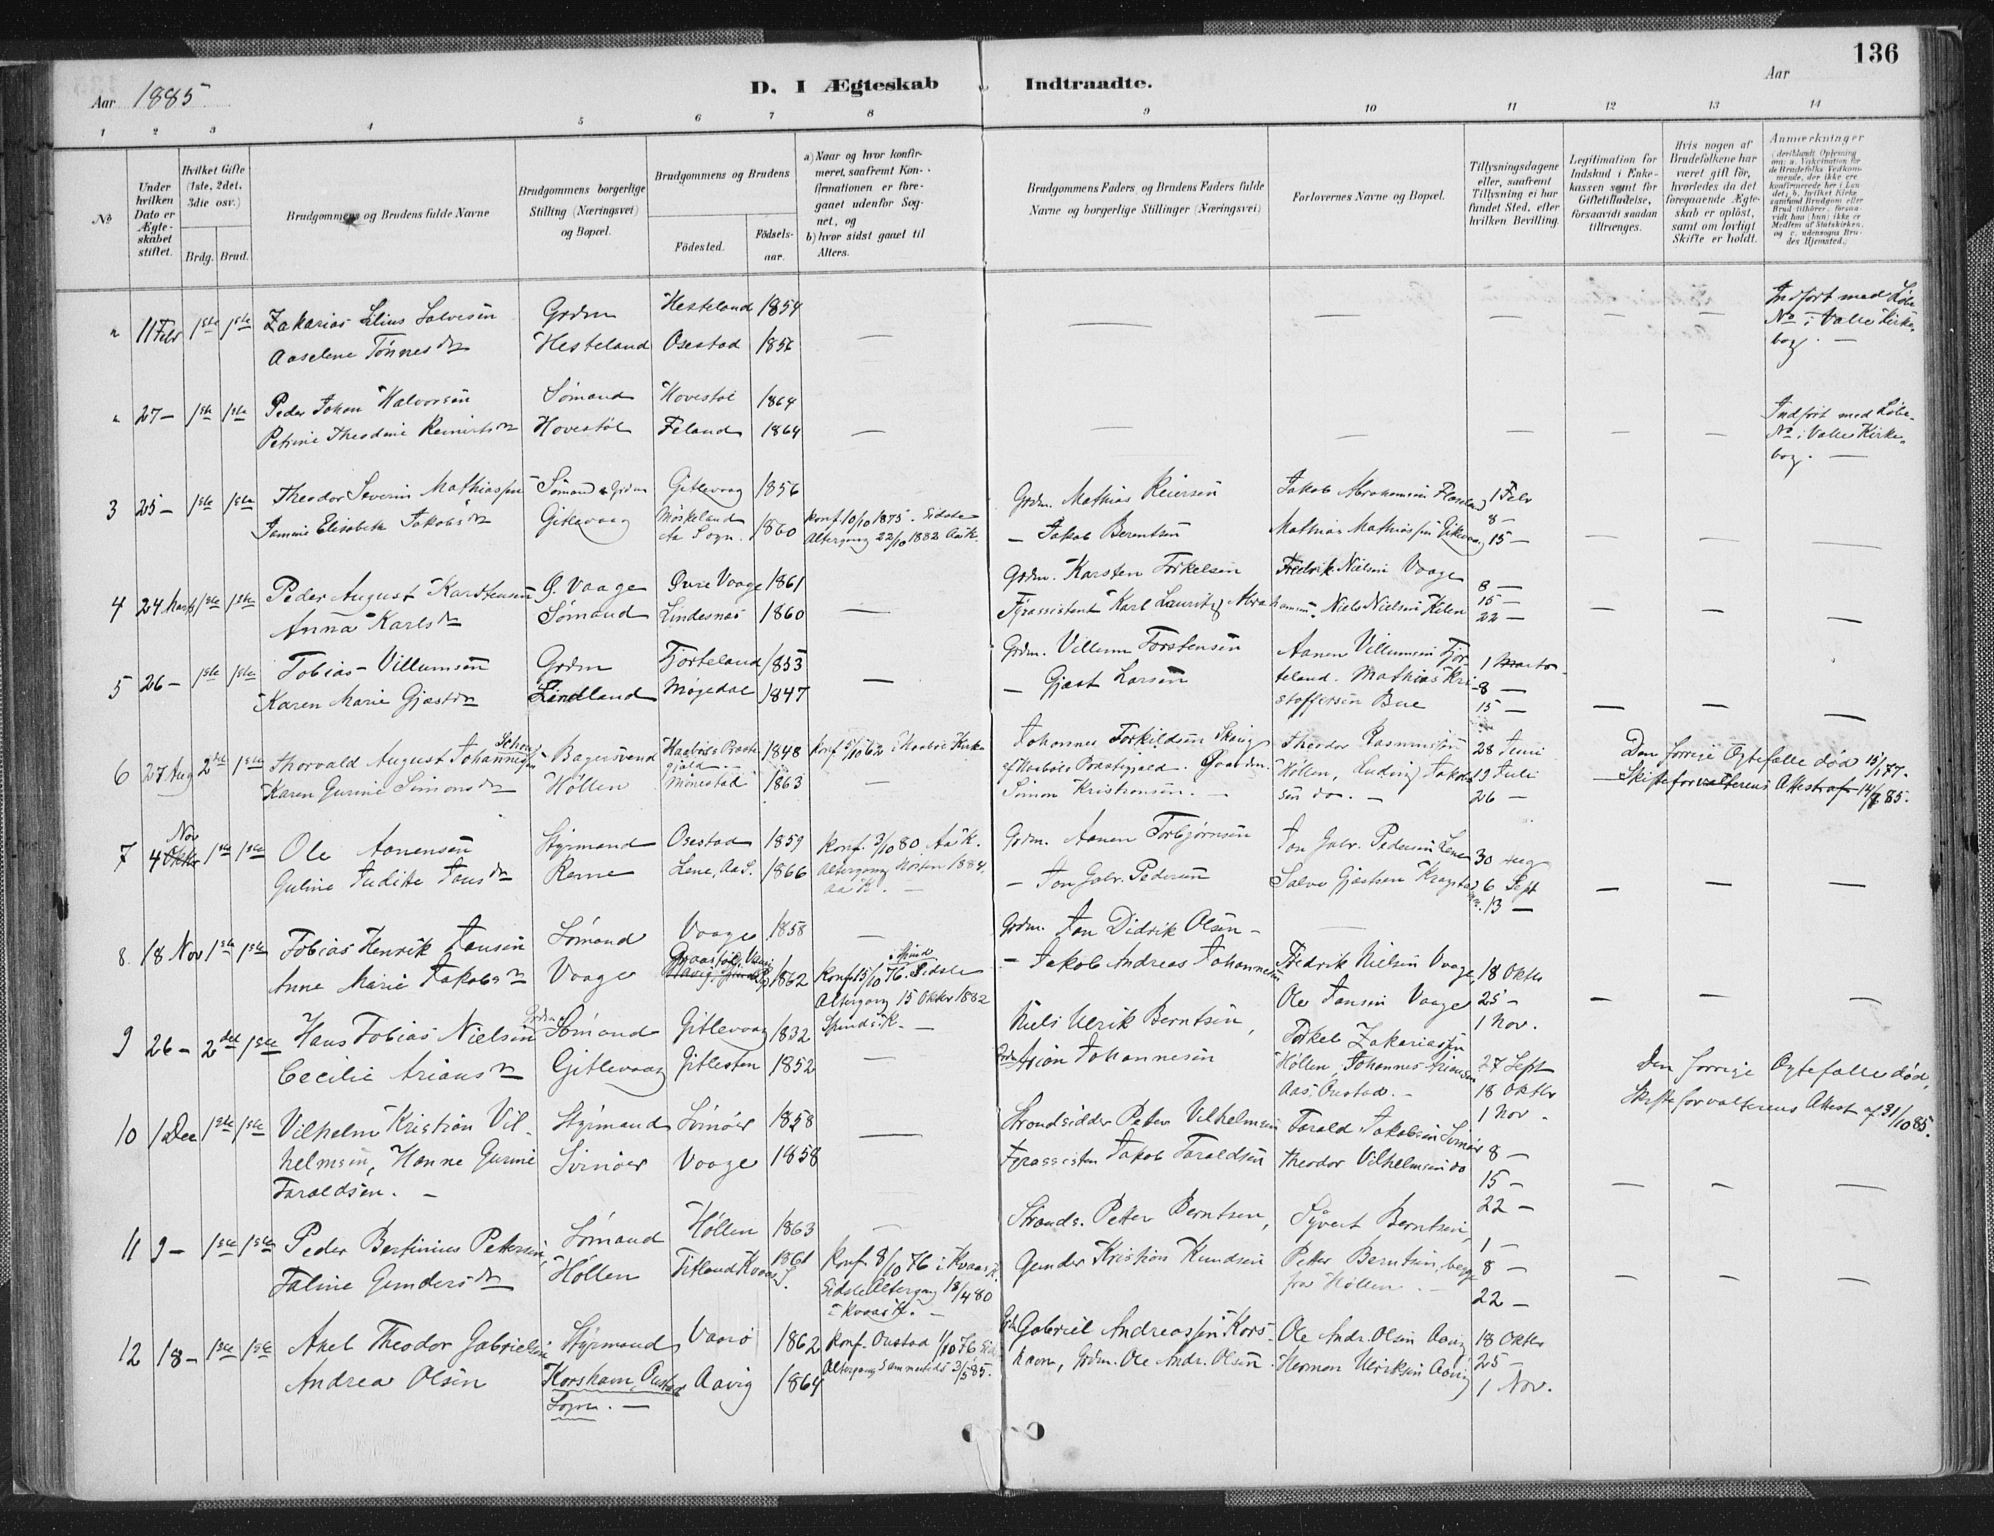 136
Aar 1885
D. I Ægteskab Indtraadte.
Aar
1 2 3 4 5 6 7 8 9 10 11 12 13 14
No
Under hvilken Dato er Ægteskabet stiftet.
Hvilket Gifte (1ste, 2det, 3die osv.)
Brdg. Brud.
Brudgommens og Brudens fulde Navne
Brudgommens borgerlige Stilling (Næringsvei) og Bopæl.
Brudgommens og Brudens
Fødested. Fødsels-aar.
a) Naar og hvor konfirmeret, saafremt Konfirmationen er foregaaet udenfor Sognet, og
b) hvor sidst gaaet til Alters.
Brudgommens Faders, og Brudens Faders fulde Navne og borgerlige Stillinger (Næringsvei)
Forlovernes Navne og Bopæl.
Tillysningsdagene eller, saafremt Tillysning ei har fundet Sted, efter hvilken Bevilling.
Legitimation for Indskud i Enkekassen samt for Giftetilladelse, forsaavidt saadan tiltrænges.
Hvis nogen af Brudefolkene har været gift før, hvorledes da det foregaaende Ægteskab er opløst, samt om lovligt Skifte er holdt.
Anmerkninger
" 11 Febr 1ste 1ste Zakarias Salvesen Grdm Hesteland 1854 — — — — — — Indført med Løbe
Aaselene Tønnesdr Hesteland Osestad 1856 No i Valle Kirke-
bog. —
" 27 — 1ste 1ste Peder Johan Halvorsen Sømand Hovestøl 1864 Indført med Løbe-
Petrine Theodine Reinertsdr Hovestøl Feland 1864 — — — — — — No i Valle Kirke-
bog. —
3 25 — 1ste 1ste Theodor Severin Mathiassen Sømand & Grdm Gitlevaag 1856 Grdm. Mathias Reiersen Jakob Abrahamsen 1 Febr
8 —
Elisabeth Jakobsdr Gitlevaag Møskeland Aa Sogn. 1860 Konf. 10/10 1875. Sidste Altergang 22/10 1882 Aa K. — Jakob Berentsen Mathias Mathiassen 15 — — — —
4 24 Marts 1ste 1ste Peder August Karstensen Ø. Vaage Øvre Vaage 1861 Grdm. Karsten Torkelsen Fredrik Nielsen Vaage 8 —
Anna Karlsdr Sømand Lindesnæs 1860 — Fyrassistent Karl Lauritz Abrahamsen. Niels Nielsen 15 —
22 — — — —
5 26 — 1ste 1ste Tobias Villumsen Grdm Fjorteland 1853 Grdm. Villum Torstensen Aanen Villumsen Fjor- 1 Marts
Karen Marie Gjæstdr Lindland Møgedal 1847 — — Gjæst Larsen teland. Mathias Kri- 8 —
stoffersen Bue 15 — — — —
6 27 Aug 2det 1ste Thorvald August Johannessen Bagersvend 1848 Konf. 5/10 62 i Kirke Johannes Torkildsen Theodor Rasmussen 28 Juni Den forrige Ægtefælle død 15/1 77.
Karen Gurine Simonsdr Høllen Mønestad 1863 — Høllen, Ludvig Jakob- 19 Juli — Skifteforvalterens Attest af 14/7 85.
Simon Kristiansen. — sen do. — 26 —
Nov
7 4 Oktbr 1ste 1ste Ole Aanensen Styrmand Osestad 1859 Konf. 3/10 80 Aa K. Grdm. Aanen Torbjørnsen Jon Gabr. Pedersen Lene 30 Aug
Guline Judite Jonsdr Rerne Lene, Aa S. 1866 Altergang Høsten 1884. Aa K. — — Jon Gabr. Pedersen Salve Gjæstsen 6 Sept
13 — — — —
8 18 Nov 1ste 1ste Tobias Henrik Jansen Sømand Vaage 1858 — Grdm. Jan Didrik Olsen —
Anne Marie Jakobsdr Vaage 1862 Konf. 15/10 76. Sidste Altergang 15 Oktbr 1882 — Jakob Andreas Johannessen Fredrik Nielsen Vaage, 18 Oktbr
Ole Jansen Vaage 25 — — — —
1 Nov.
9 26 — 2det 1ste Hans Tobias Nielsen Grdm Sømand Gitlevaag 1832 Spinds K. — Niels Ulrik Berntsen, Torkel Zakariassen
Cecilie Ariansdr Gitlevaag Gitlesten 1852 — Grdm Arian Johannesen Høllen, Johannes Ariansen 27 Sept Den forrige Ægtefælle død,
Aas, Oustad. — 18 Oktbr Skifteforvalterens Attest af 31/10 85.
1 Nov.
10 1 Dec 1ste 1ste Vilhelm Kristian Vil- Styrmand Svinøer 1858 Strandsidder Peter Vilhelmsen Tarald Jakobsen Svinør
helmsen, Hanne Gurine Svinøer Vaage 1858 — Fyrassistent Jakob Taraldsen Theodor Vilhelmsen do 8 —
Taraldsen. — 15 — — — —
22 —
11 9 — 1ste 1ste Peder Bertinius Petersen, Sømand Høllen 1863 — Strands. Peter Berntsen, Syvert Berntsen, 1 —
Taline Gundersdr Høllen Titland Kvaas S. 1861 Konf. 8/10 76 i Kvaas K. Gunder Kristian Knudsen Petter Berntsen, begge fra Høllen. — 8 —
Sidste Altergang 18/4 80 i Kvaas K. — 22 — — — —
12 18 — 1ste 1ste Axel Theodor Gabrielsen Styrmand Vaarø 1862 Konf. Oustad 1/10 76 Gabriel Andreassen Kors- Ole Andr. Olsen Aavig 18 Oktbr
Andrea Olsen Korshavn, Oustad Aavig 1864 Altergang sammesteds 3/5 85. havn, Grdm. Ole Andr. Olsen. Herman Ulriksen Aavig 25 —
Sogn. — 1 Nov.